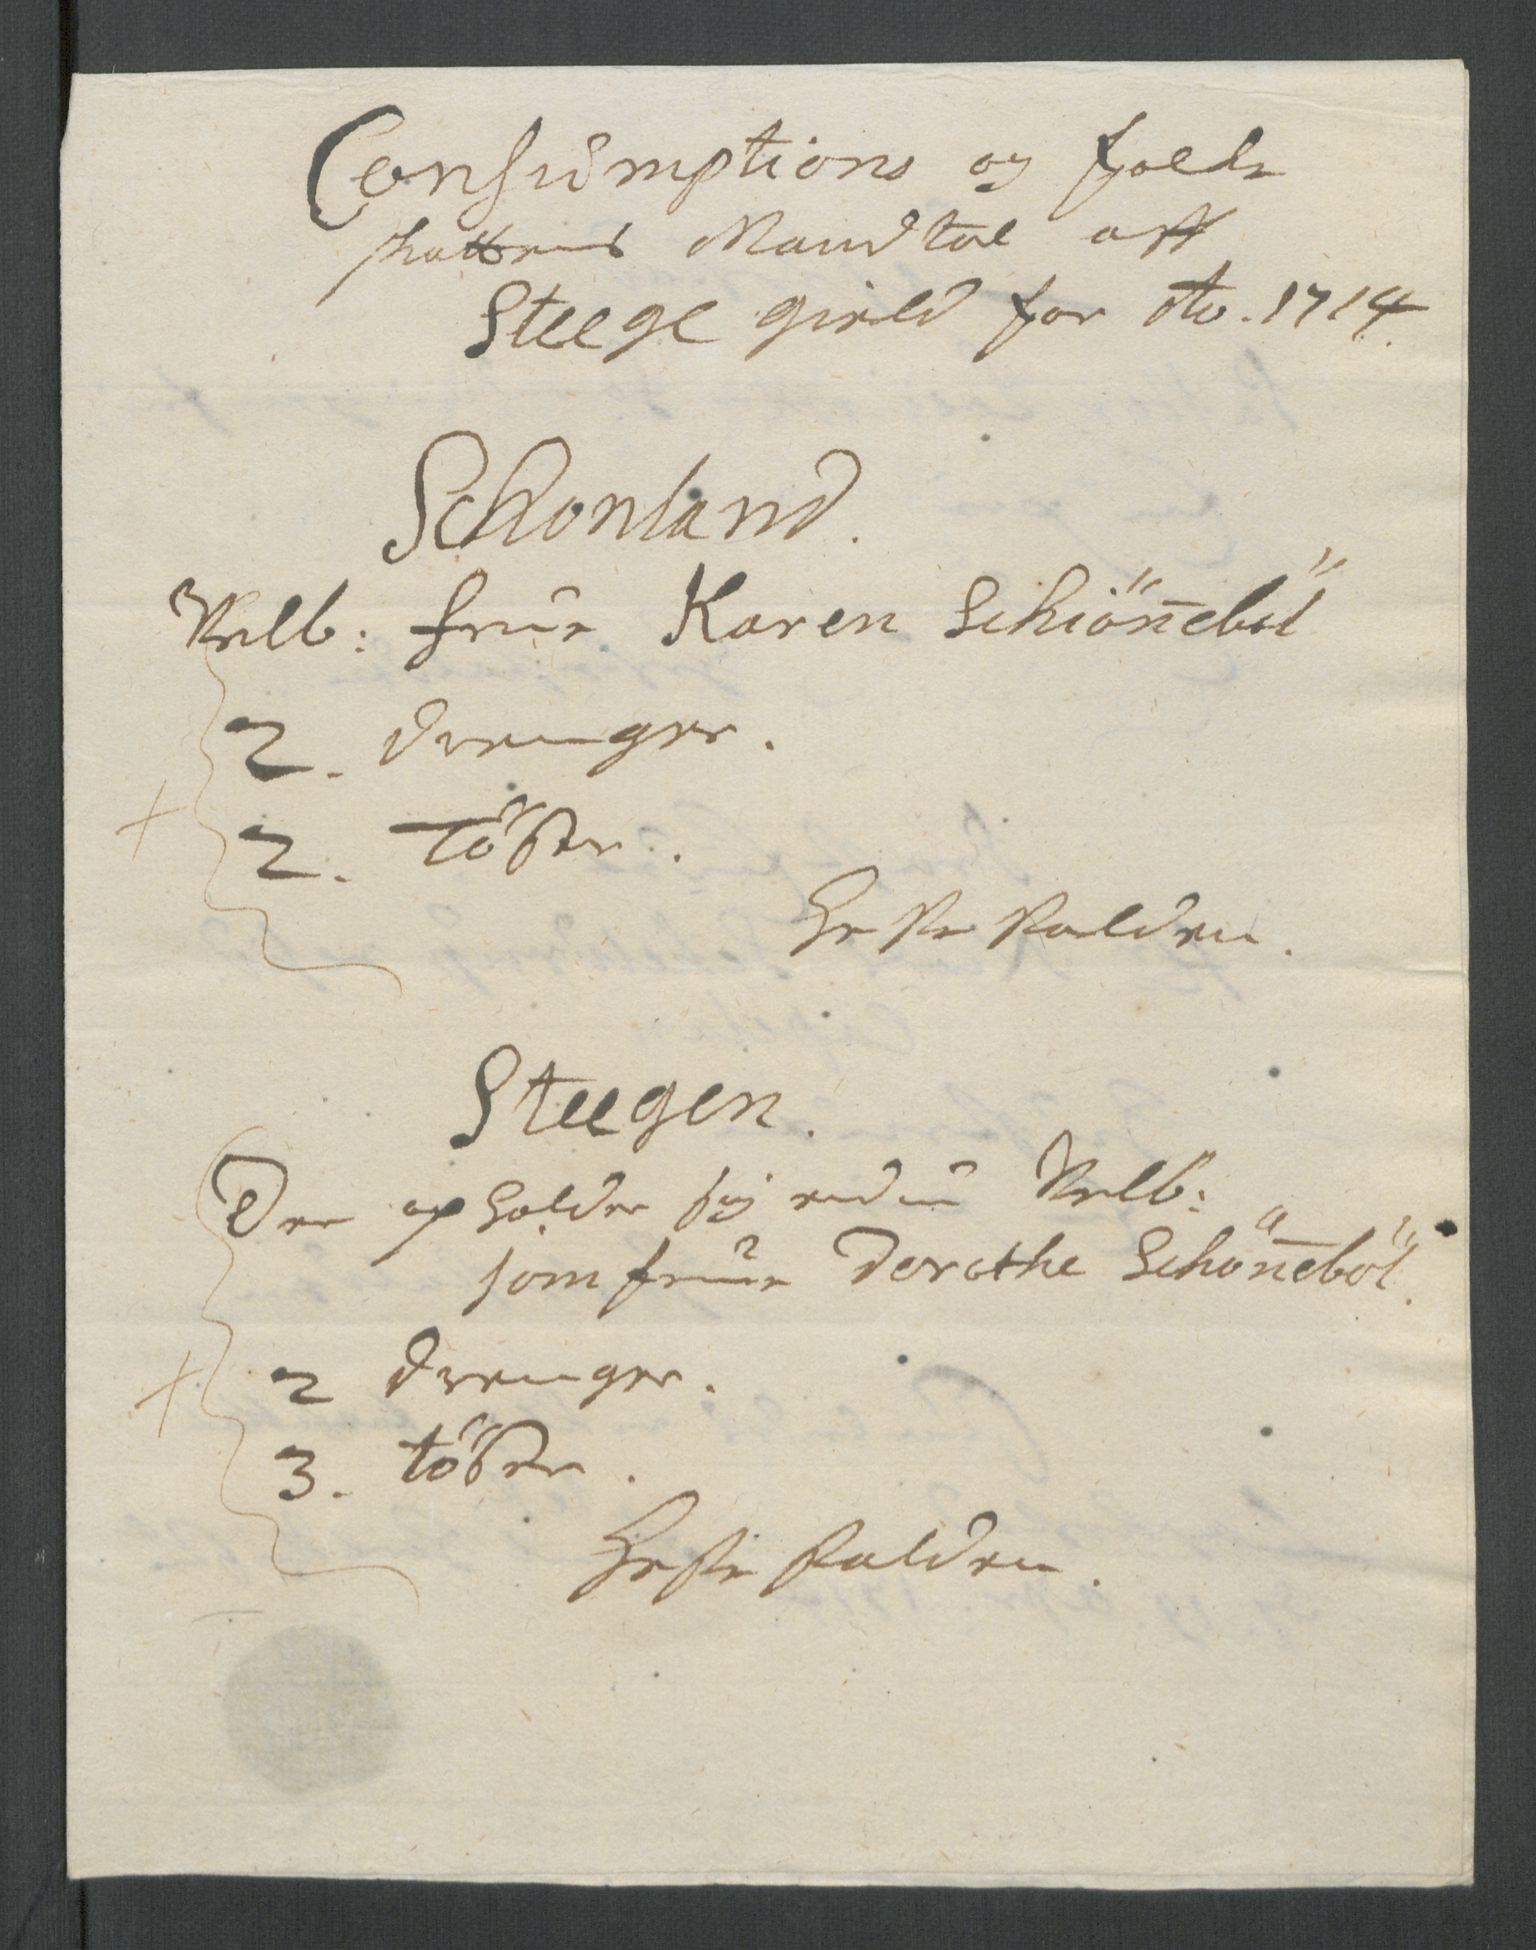 Consumptions og folche
skattens Mandtal aff
Steege gield for Ao. 1714.
Schonland.
Velb: frue Karen Schiöneböl
2. drenger.
2. Töster.
Hester Polden.
Steegen.
Der opholder sig endnu Velb:
Jomfrue Dorothe Schöneböl.
2 drenger.
3. töster.